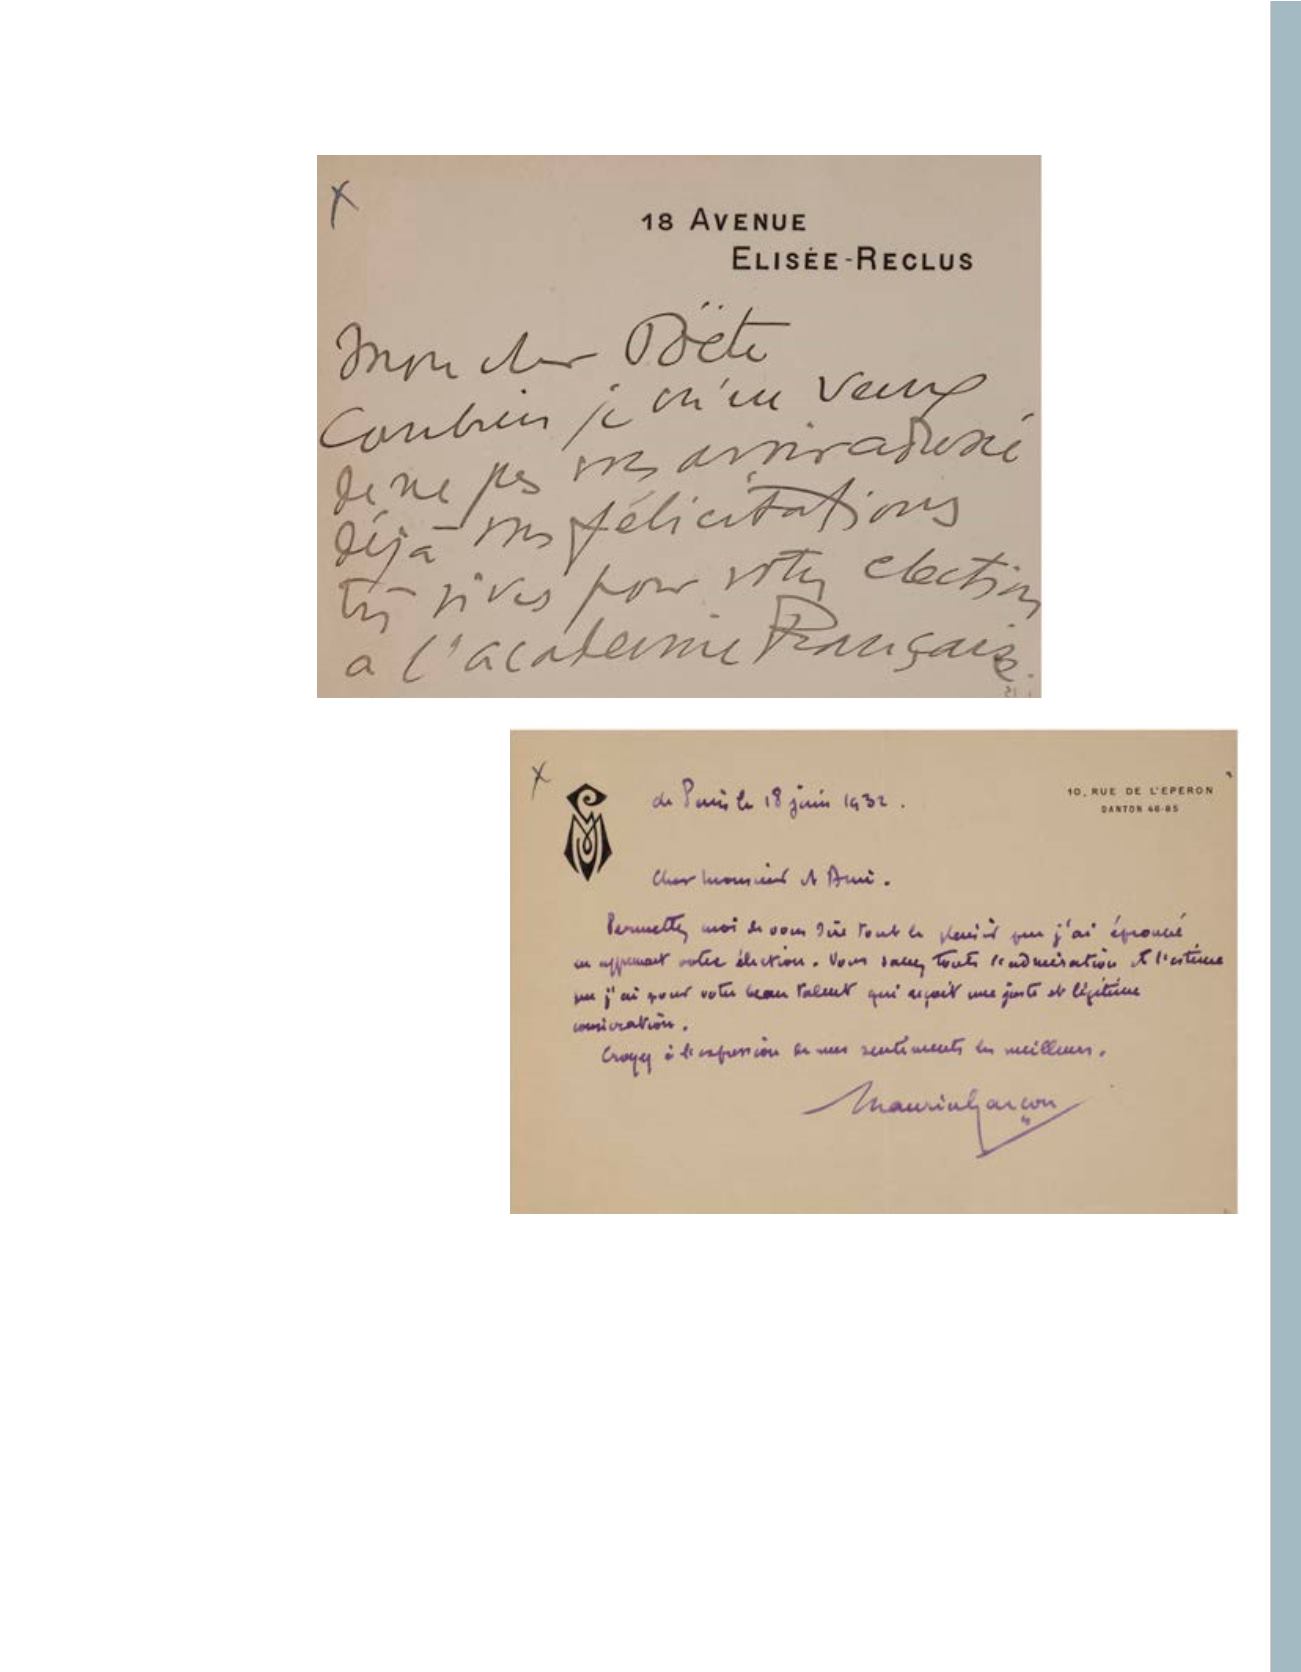 X
18 AVENUE
ELISÉE-RECLUS
Mon cher Poëte
Combien je m'en veux
de ne pas vous avoir adressé
déjà mes félicitations
très vives pour votre election
a l'academie Française.
X
de Paris le 18 juin 1932.
10, RUE DE L'EPERON
DANTON 46-85
Cher Monsieur et Ami.
Permettez moi de vous dire tout le plaisir que j'ai éprouvé
en apprenant votre élection. Vous savez toute l'admiration et l'estime
que j'ai pour votre beau talent qui reçoit une juste et légitime
consécration.
Croyez à l'expression de mes sentiments les meilleurs.
Maurice Garçon